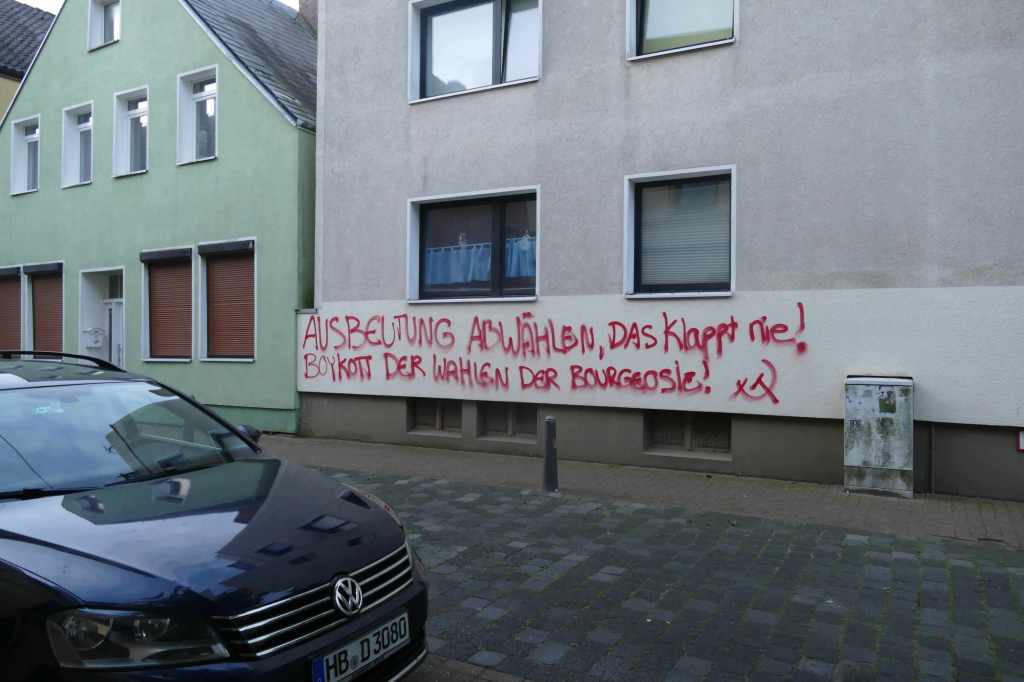 AUSBEUTUNG ABWÄHLEN, DAS Klappt nie!
BOYKOTT DER WAHLEN DER BOURGEOSIE!
HB D 3080